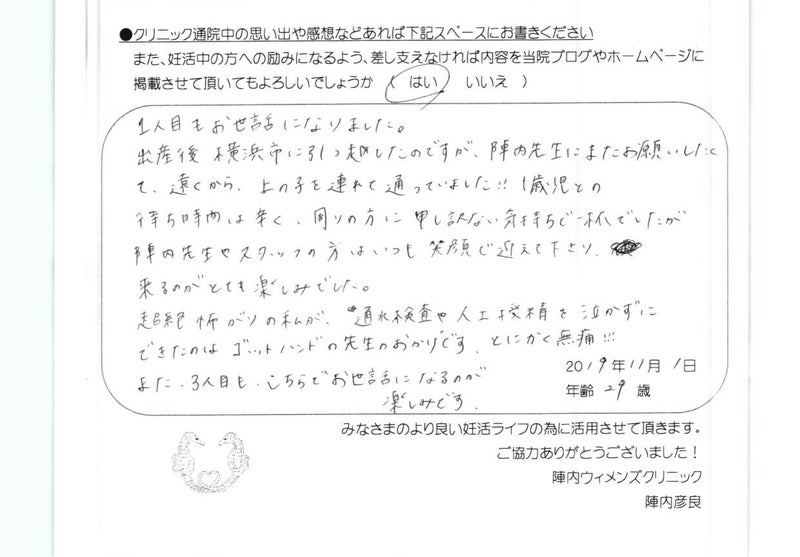 ●クリニック通院中の思い出や感想などあれば下記スペースにお書きください
また、妊活中の方への励みになるよう、差し支えなければ内容を当院ブログやホームページに
掲載させて頂いてもよろしいでしょうか ( はい いいえ )
1人目もお世話になりました。
出産後 横浜市に引っ越したのですが、陣内先生にまたお願いしたく
て、遠くから、上の子を連れて通っていました!! 1歳児との
待ち時間は辛く、周りの方に申し訳ない気持ちで一杯でしたが
陣内先生やスタッフの方はいつも笑顔で迎えて下さり、
来るのがとても楽しみでした。
超絶怖がりの私が、通水検査や人工授精を泣かずに
できたのはゴットハンドの先生のおかげです。とにかく無痛!!!
また、3人目も、こちらでお世話になるのが
楽しみです。
2019年11月1日
年齢 29 歳
みなさまのより良い妊活ライフの為に活用させて頂きます。
ご協力ありがとうございました！
陣内ウィメンズクリニック
陣内彦良